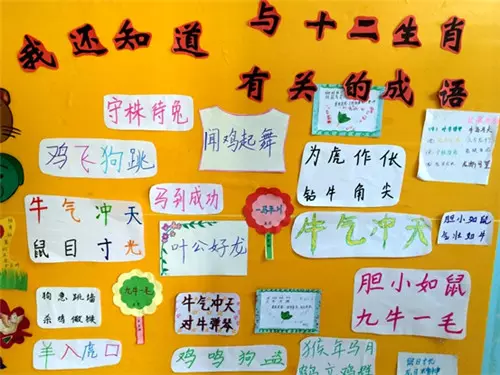 我还知道
与十二生肖
有关的成语
守株待兔
闻鸡起舞
鸡飞狗跳
为虎作伥
钻牛角尖
马到成功
牛气冲天
鼠目寸光
叶公好龙
牛气冲天
胆小如鼠
气壮如牛
狗急跳墙
杀鸡儆猴
九牛一毛
牛气冲天
对牛弹琴
胆小如鼠
九牛一毛
羊入虎口
鸡鸣狗盗
猴年马月
鹤立鸡群